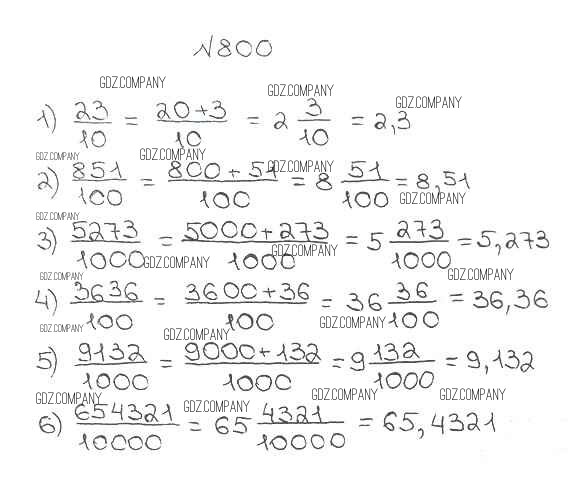 №800
GDZ.COMPANY
GDZ.COMPANY
GDZ.COMPANY
1) 23/10 = 20+3/10 = 2 3/10 = 2,3
GDZ.COMPANY
GDZ.COMPANY
GDZ.COMPANY
2) 851/100 = 800+51/100 = 8 51/100 = 8,51
GDZ.COMPANY
GDZ.COMPANY
3) 5273/1000 = 5000+273/1000 = 5 273/1000 = 5,273
GDZ.COMPANY
GDZ.COMPANY
GDZ.COMPANY
GDZ.COMPANY
4) 3636/100 = 3600+36/100 = 36 36/100 = 36,36
GDZ.COMPANY
GDZ.COMPANY
GDZ.COMPANY
5) 9132/1000 = 9000+132/1000 = 9 132/1000 = 9,132
GDZ.COMPANY
GDZ.COMPANY
GDZ.COMPANY
GDZ.COMPANY
6) 654321/10000 = 65 4321/10000 = 65,4321